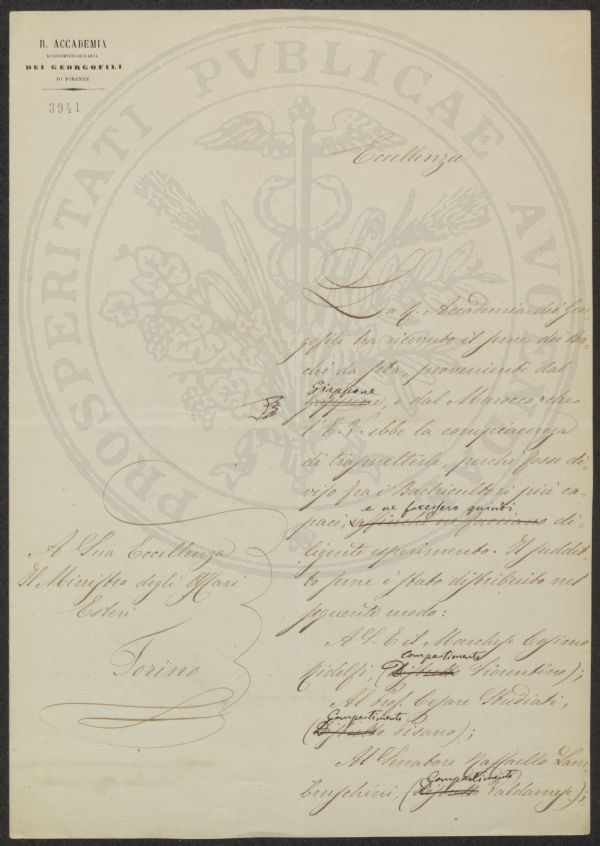 R. ACCADEMIA
ECONOMICO-AGRARIA
DEI GEORGOFILI
DI FIRENZE
3941
PROSPERITATI PVBLICAE AVGENDAE
Eccellenza
La R. Accademia dei Geor
gofili ha ricevuto il seme dei Ba-
chi da seta, proveniente dal
Giappone
e dal Marocco, che
l'E. V. ebbe la compiacenza
di trasmetterle, perchè fosse di-
viso fra i Bachicultori più ca-
e ne facessero quindi
paci, di-
ligente esperimento. Il suddet-
to seme è stato distribuito nel
seguente modo:
A S. E. il Marchese Cosimo
compartimento
Ridolfi, (Distretto Fiorentino);
Al Prof. Cesare Studiati,
Compartimento
(Distretto Pisano);
Al Senatore Raffaello Lam
Compartimento
bruschini, (Distretto Valdarnese);
A Sua Eccellenza
Il Ministro degli Affari
Esteri
Torino